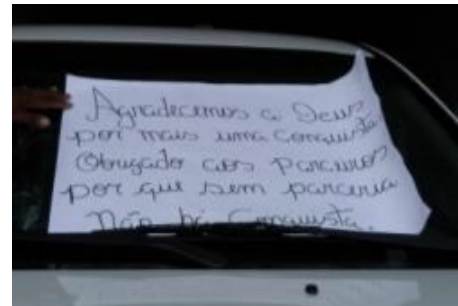 Agradecemos a Deus
por mais uma conquista
Obrigado aos parceiros
por que sem parceria
Não há Conquista.